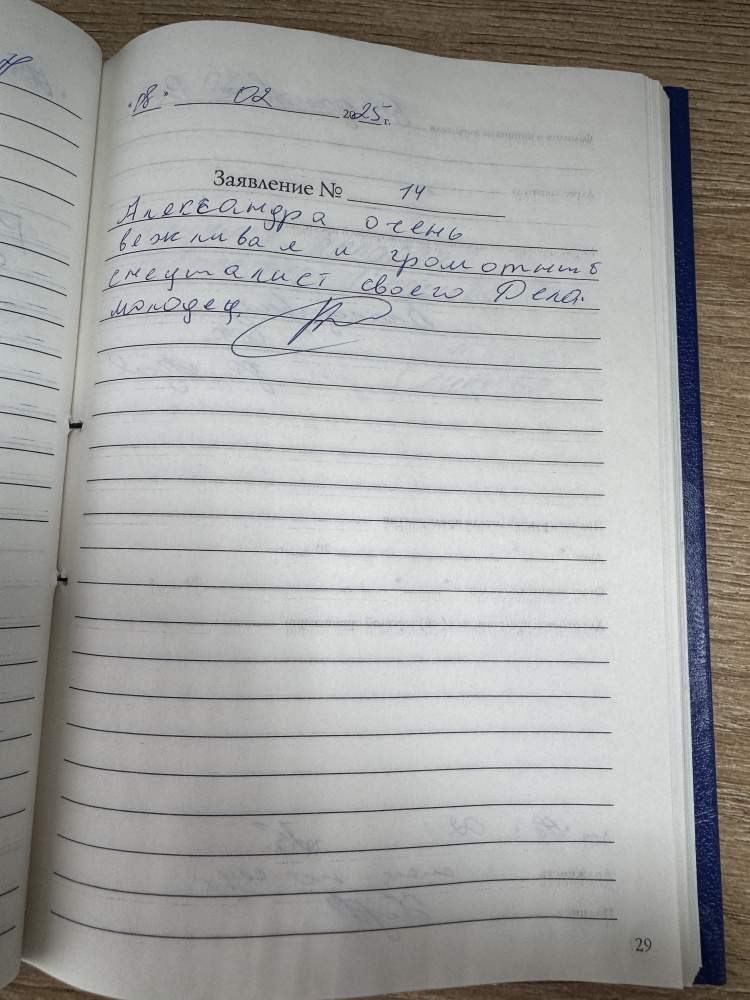 02 2025 г.
Заявление № 14
Александра очень
вежливая и громотный
специалист своего Дела.
молодец.
29